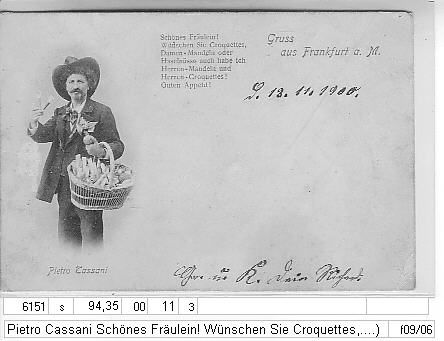 Schönes Fräulein!
Wünschen Sie Croquettes,
Damen-Mandeln oder
Haselnüsse auch habe ich
Herren-Mandeln und
Herren-Croquettes!
Guten Appetit!
Gruss
aus Frankfurt a. M.
13. 11. 1900.
Pietro Cassani
6151 s 94,35 00 11 3
Pietro Cassani Schönes Fräulein! Wünschen Sie Croquettes,....) f09/06